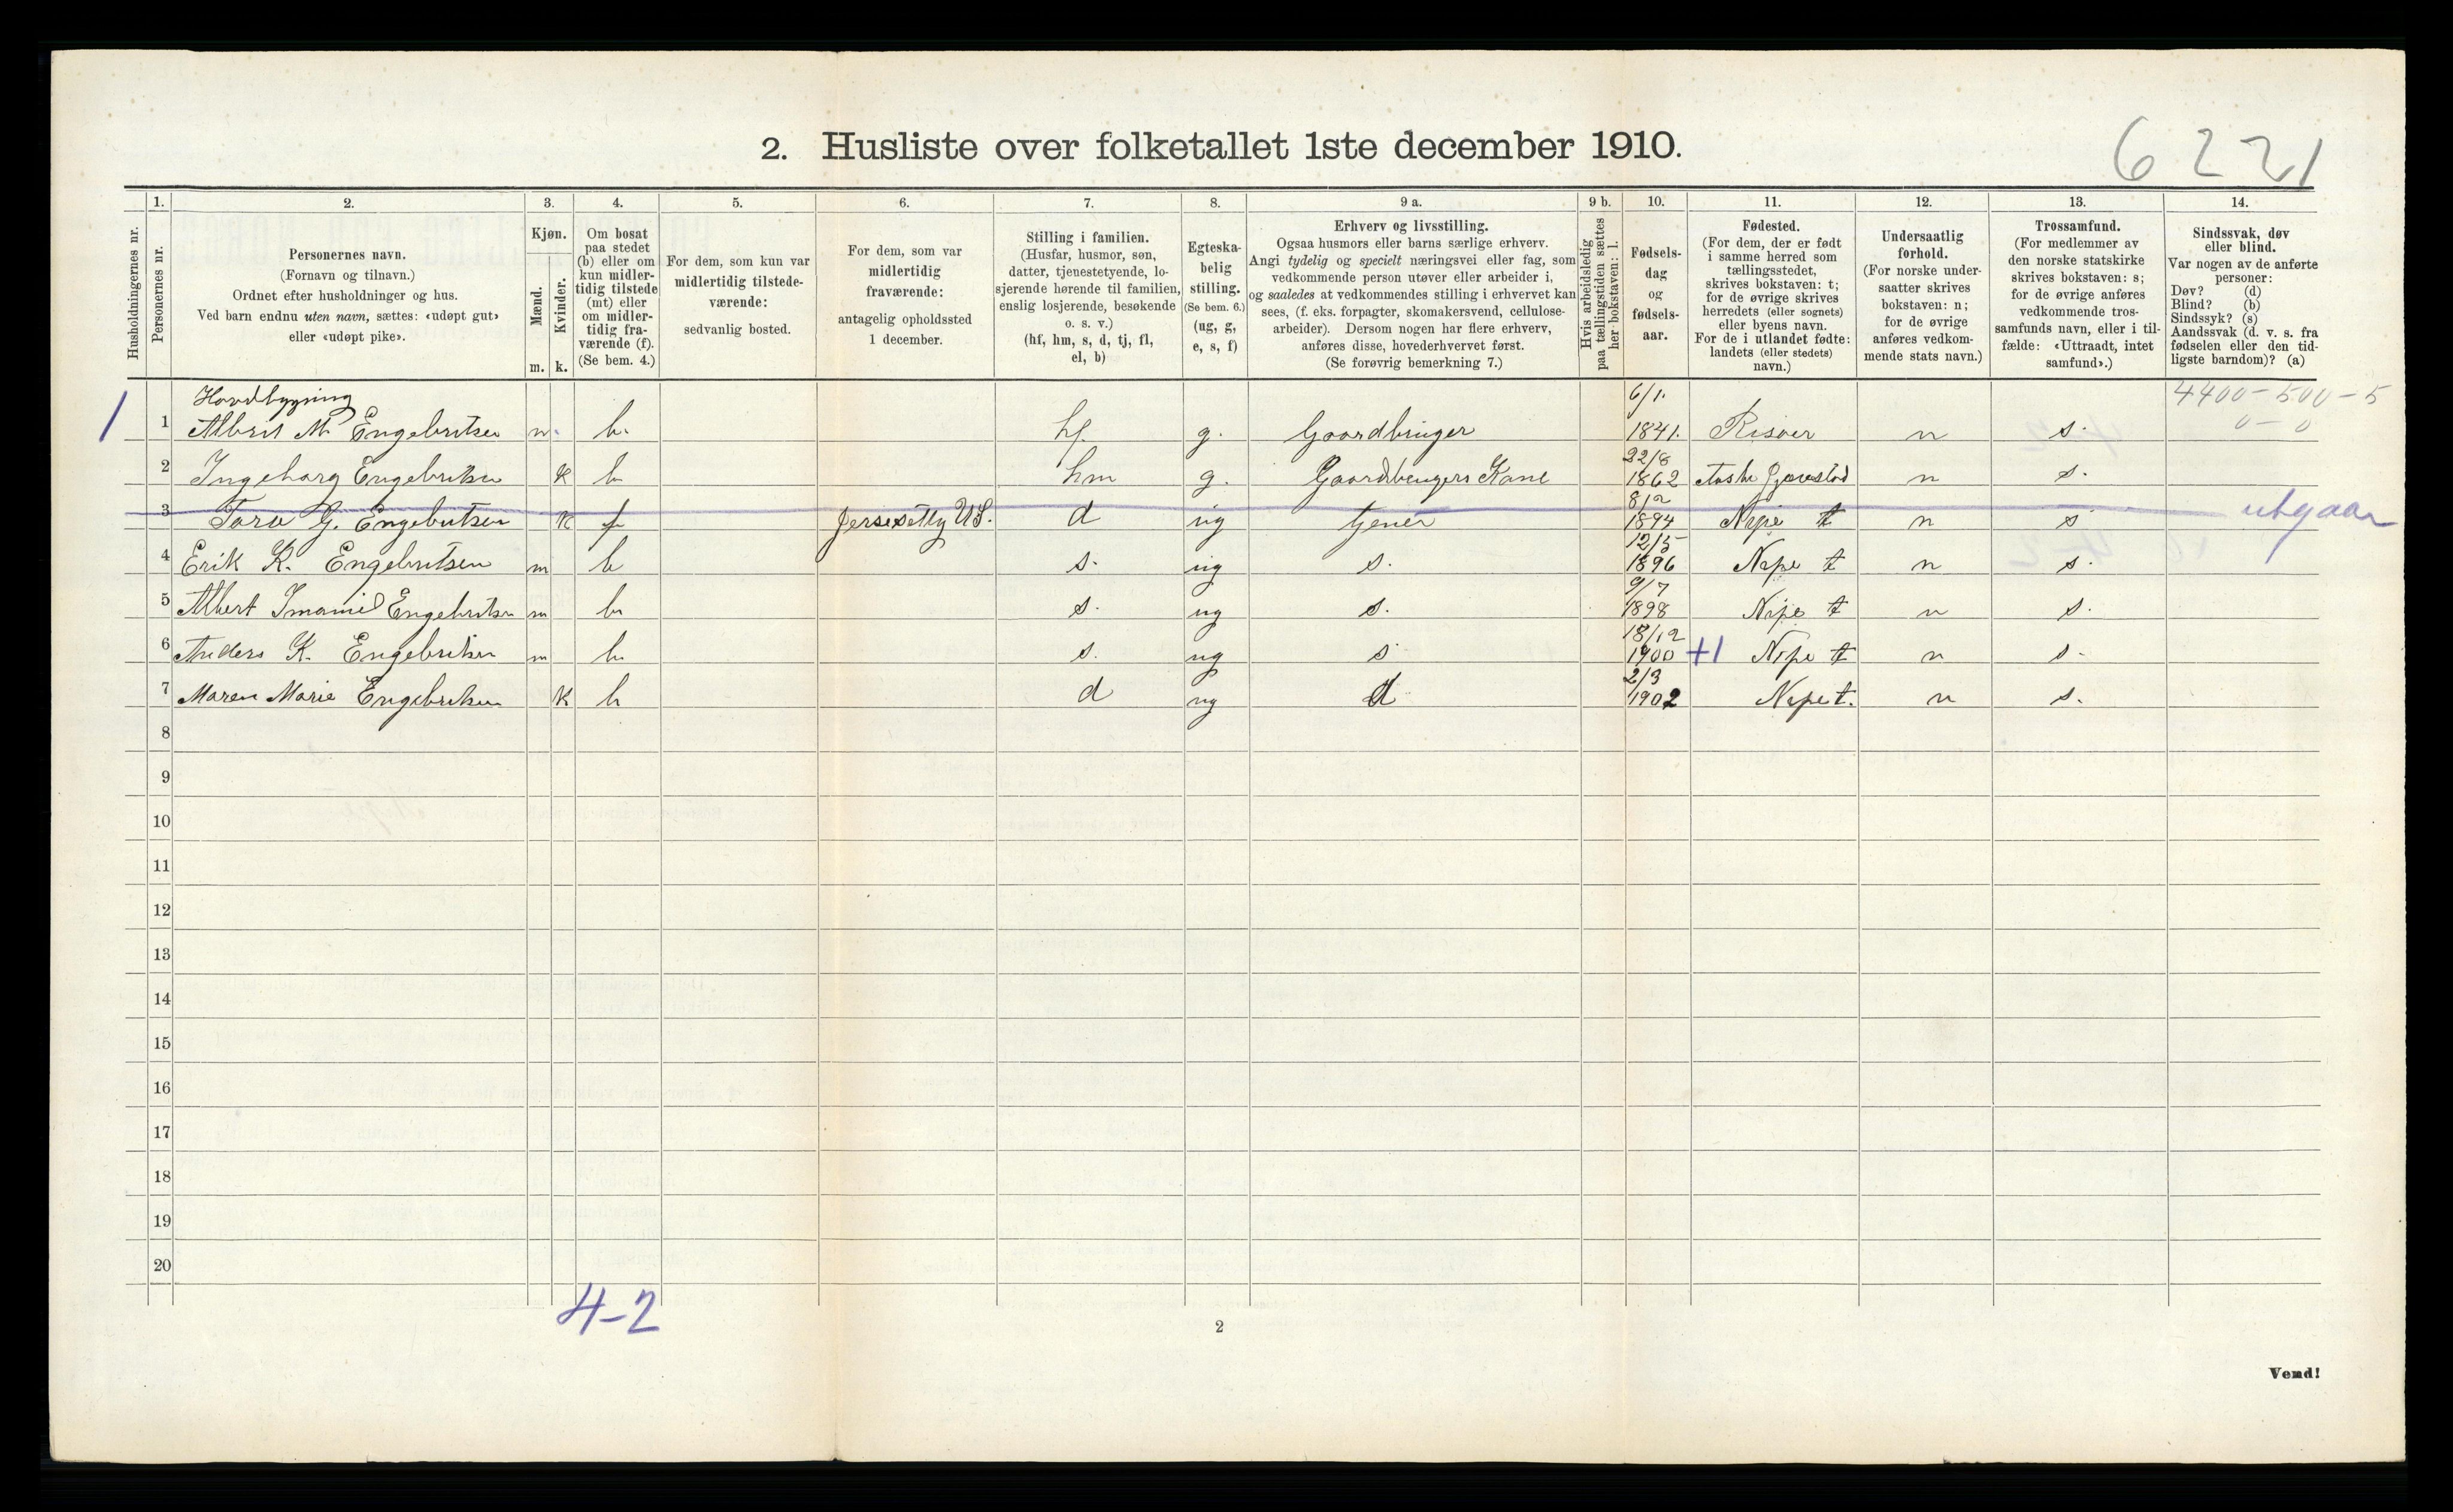 2. Husliste over folketallet 1ste december 1910.
6221
Husholdningernes nr.
1.
Personernes nr.
2.
Personernes navn.
(Fornavn og tilnavn.)
Ordnet efter husholdninger og hus.
Ved barn endnu uten navn, sættes: «udøpt gut»
eller «udøpt pike».
3.
Kjøn.
Mænd.
Kvinder.
m. k.
4.
Om bosat
paa stedet
(b) eller om
kun midler-
tidig tilstede
(mt) eller
om midler-
tidig fra-
værende (f).
(Se bem. 4.)
5.
For dem, som kun var
midlertidig tilstede-
værende:
sedvanlig bosted.
6.
For dem, som var
midlertidig
fraværende:
antagelig opholdssted
1 december.
7.
Stilling i familien.
(Husfar, husmor, søn,
datter, tjenestetyende, lo-
sjerende hørende til familien,
enslig losjerende, besøkende
o. s. v.)
(hf, hm, s, d, tj, fl,
el, b)
8.
Egteska-
belig
stilling.
(Se bem. 6.)
(ug, g,
e, s, f)
9 a.
Erhverv og livsstilling.
Ogsaa husmors eller barns særlige erhverv.
Angi tydelig og specielt næringsvei eller fag, som
vedkommende person utøver eller arbeider i,
og saaledes at vedkommendes stilling i erhvervet kan
sees, (f. eks. forpagter, skomakersvend, cellulose-
arbeider). Dersom nogen har flere erhverv,
anføres disse, hovederhvervet først.
(Se forøvrig bemerkning 7.)
9 b.
Hvis arbeidsledig
paa tællingstiden sættes
her bokstaven: l.
10.
Fødsels-
dag
og
fødsels-
aar.
11.
Fødested.
(For dem, der er født
i samme herred som
tællingsstedet,
skrives bokstaven: t;
for de øvrige skrives
herredets (eller sognets)
eller byens navn.
For de i utlandet fødte:
landets (eller stedets)
navn.)
12.
Undersaatlig
forhold.
(For norske under-
saatter skrives
bokstaven: n;
for de øvrige
anføres vedkom-
mende stats navn.)
13.
Trossamfund.
(For medlemmer av
den norske statskirke
skrives bokstaven: s;
for de øvrige anføres
vedkommende tros-
samfunds navn, eller i til-
fælde: «Uttraadt, intet
samfund».)
14.
Sindssvak, døv
eller blind.
Var nogen av de anførte
personer:
Døv? (d)
Blind? (b)
Sindssyk? (s)
Aandssvak (d. v. s. fra
fødselen eller den tid-
ligste barndom)? (a)
Hovdbygning 4400-500-5
0-0
1 1 Albert M. Engebritsen m. b. hf. g. Gaardbruger 6/1. 1841. Risøer n s.
2 Ingeborg Engebritsen k b hm g. Gaardbrugers Kone 22/8 1862 Gjærestad n s.
3 Tora G. Engebritsen k f U.S. d ug tjener 8/2 1894 Nipe t n s utgaar
4 Erik K. Engebritsen m b s. ug s. 12/5 1896 Nipe t n s.
5 Albert Imanuel Engebritsen m b s. ug s. 9/7 1898 Nipe t n s.
6 Anders K. Engebritsen m b. s. ug s 18/12 1900 +1 Nipe t n s.
7 Maren Marie Engebritsen k b d ug d 2/3 1902 Nipe t. n s.
8
9
10
11
12
13
14
15
16
17
18
19
20
4-2
2
Vend!